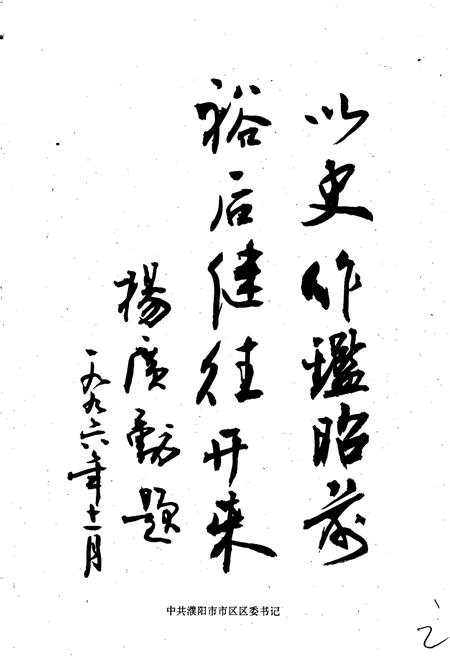 以史作鑑昭前
裕后继往开来
楊廣勳题
一九九六年十一月
中共濮阳市市区区委书记